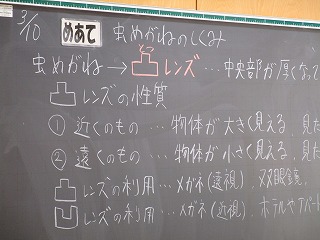 3/10 めあて 虫めがねのしくみ
虫めがね→凸レンズ…中央部が厚くなって
凸レンズの性質
①近くのもの…物体が大きく見える、見た
②遠くのもの…物体が小さく見える、見た
凸レンズの利用…メガネ(遠視)、双眼鏡、
凹レンズの利用…メガネ(近視)、ホテルやアパート